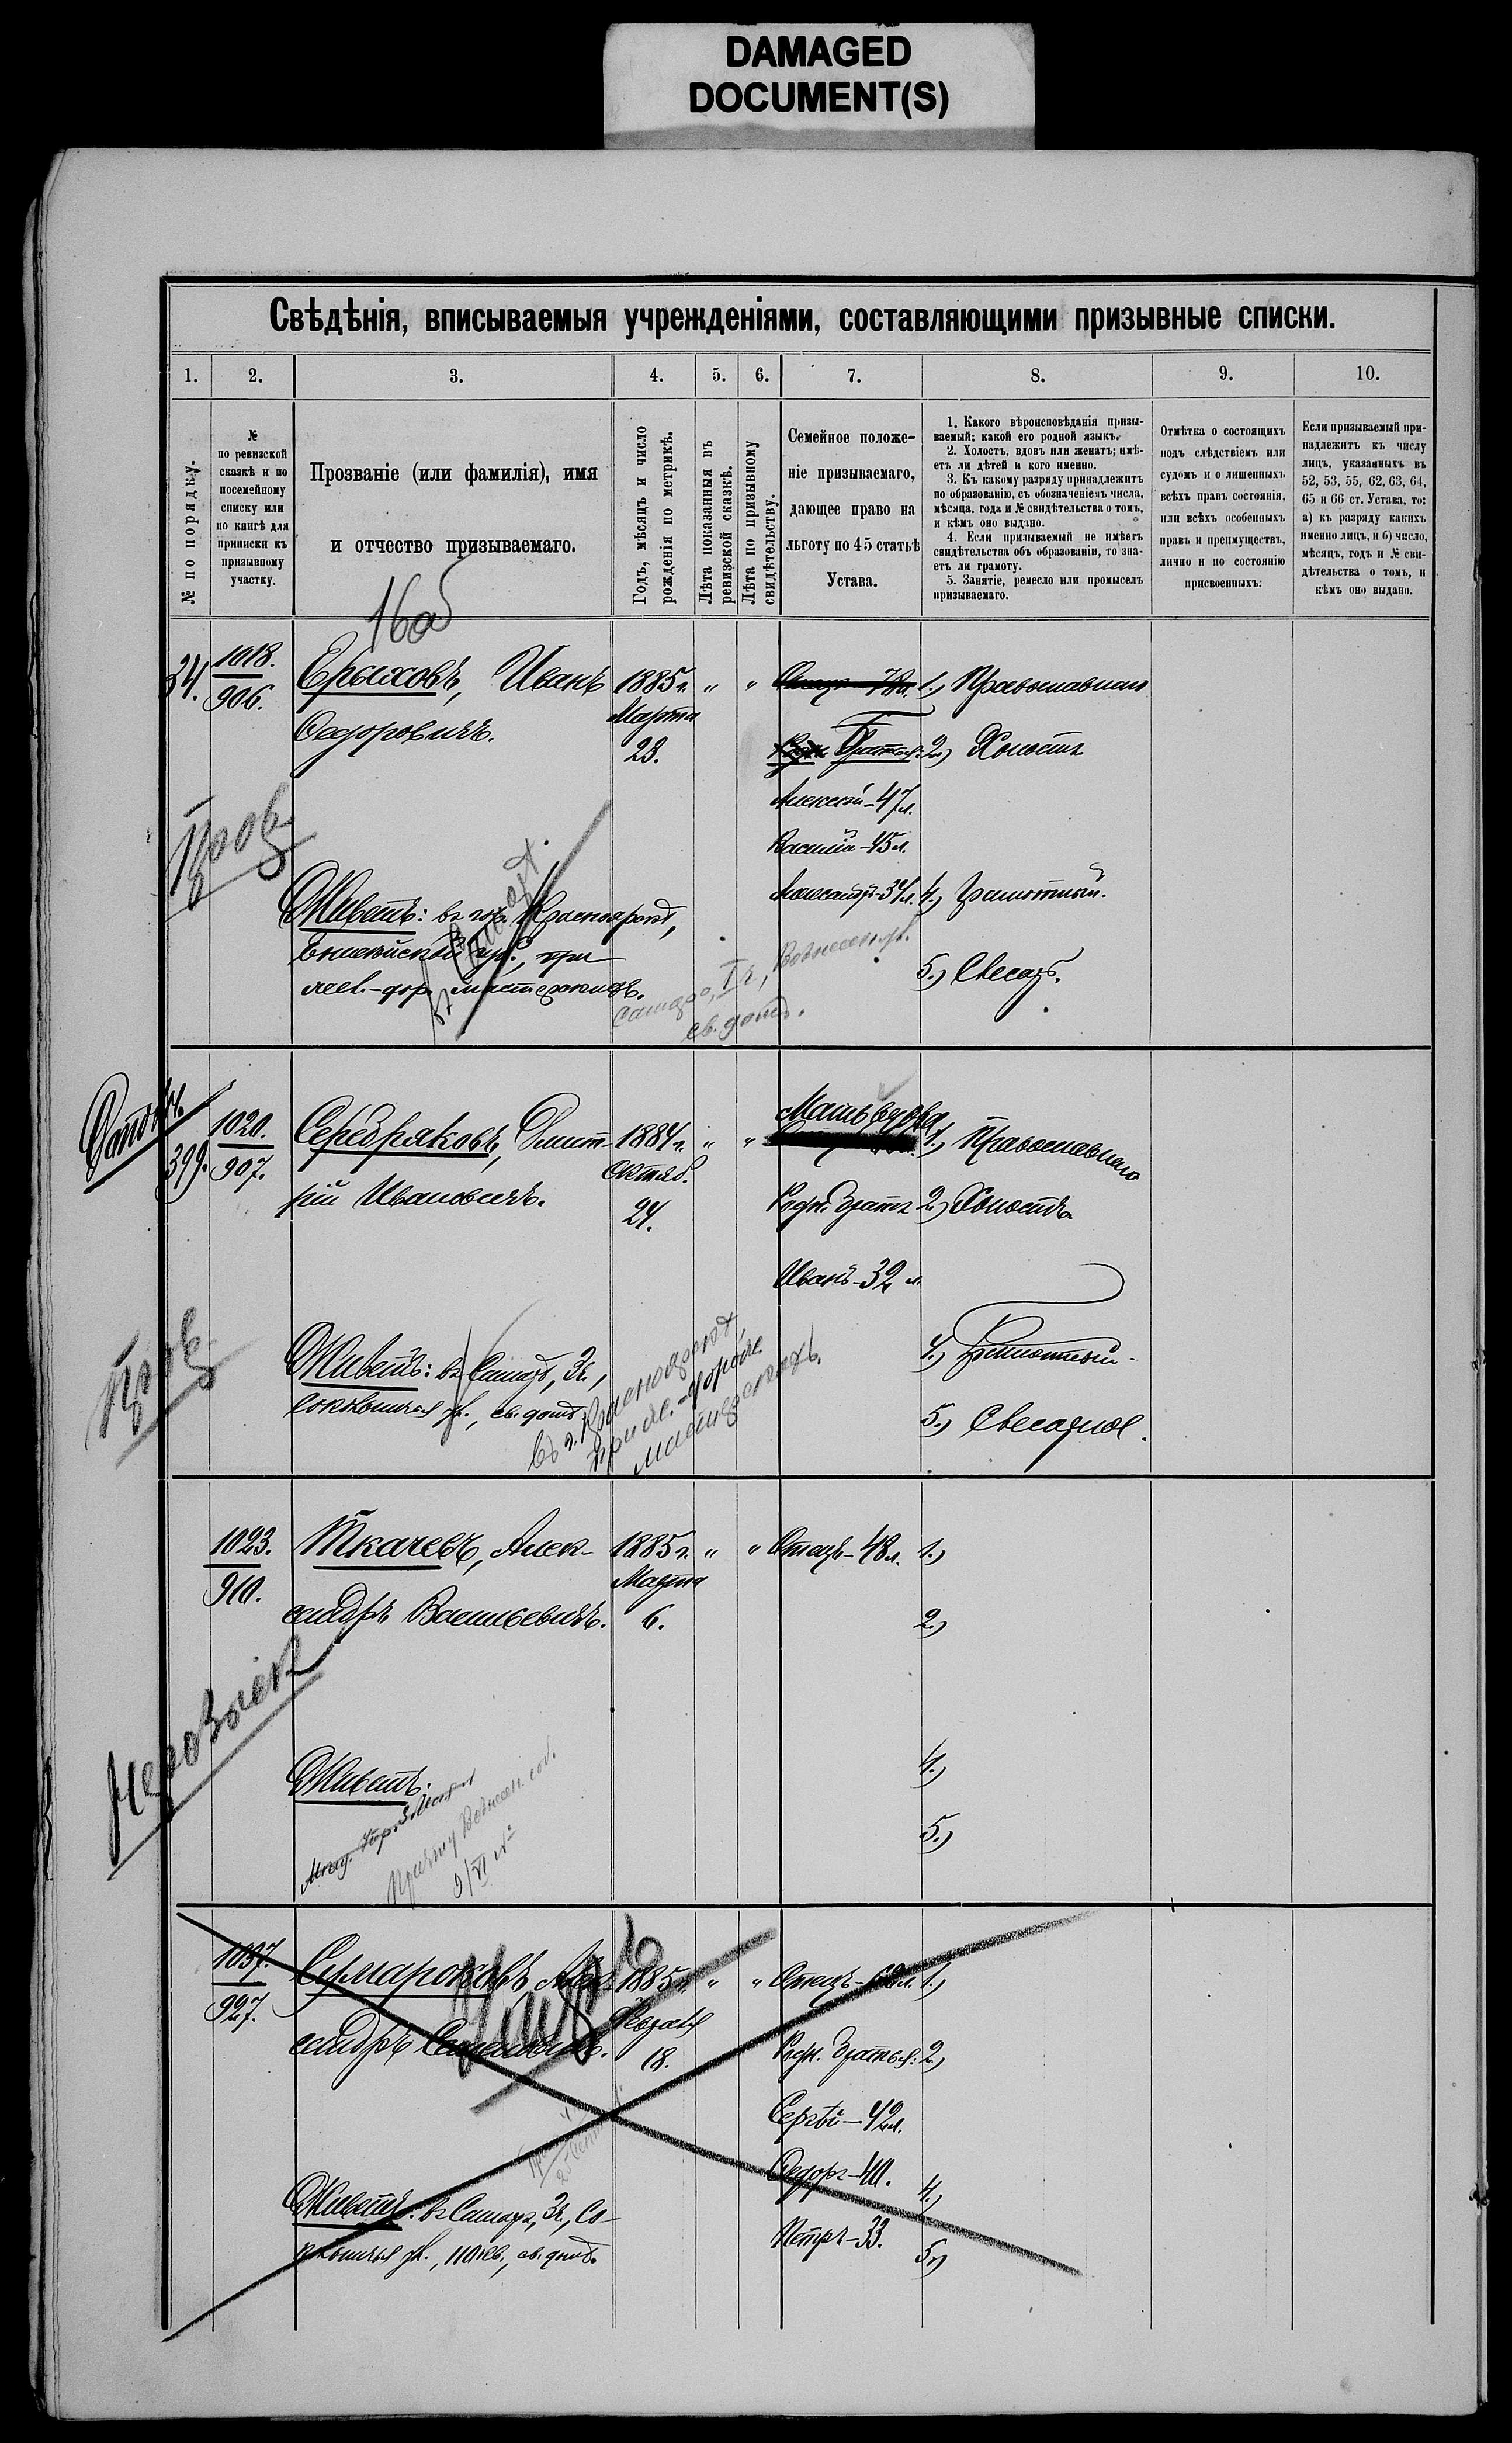 DAMAGED
DOCUMENT(S)
Свѣдѣнія, вписываемыя учрежденіями, составляющими призывные списки.
1. 2. 3. 4. 5. 6. 7. 8. 9. 10.
№ по порядку.
№
по ревизской
сказкѣ и по
посемейному
списку или
по книгѣ для
приписки къ
призывному
участку.
Прозваніе (или фамилія), имя
и отчество призываемаго.
Годъ, мѣсяцъ и число
рожденія по метрикѣ.
Лѣта показанныя въ
ревизской сказкѣ.
Лѣта по призывному
свидѣтельству.
Семейное положе-
ніе призываемаго,
дающее право на
льготу по 45 статьѣ
Устава.
1. Какого вѣроисповѣданія призы-
ваемый; какой его родной языкъ.
2. Холостъ, вдовъ или женатъ; имѣ-
етъ ли дѣтей и кого именно.
3. Къ какому разряду принадлежитъ
по образованію, съ обозначеніемъ числа,
мѣсяца, года и № свидѣтельства о томъ,
и кѣмъ оно выдано.
4. Если призываемый не имѣетъ
свидѣтельства объ образованіи, то зна-
етъ ли грамоту.
5. Занятіе, ремесло или промыселъ
призываемаго.
Отмѣтка о состоящихъ
подъ слѣдствіемъ или
судомъ и о лишенныхъ
всѣхъ правъ состоянія,
или всѣхъ особенныхъ
правъ и преимуществъ,
лично и по состоянію
присвоенныхъ.
Если призываемый при-
надлежитъ къ числу
лицъ, указанныхъ въ
52, 53, 55, 62, 63, 64,
65 и 66 ст. Устава, то:
а) къ разряду какихъ
именно лицъ, и б) число,
мѣсяцъ, годъ и № сви-
дѣтельства о томъ, и
кѣмъ оно выдано.
34.
1018.
906.
Ерыховъ, Иванъ
Федоровичъ.
1885 г.
Марта
23.
" "
Братья:
Алексѣй-47 л.
Василій-45 л.
Александръ-34 л.
1.) Православнаго
2.) Холостъ
4.) Грамотный.
5.) Слесарь.
Живетъ: въ гор. Красноярскѣ,
Енисейской губ., при
жел.-дор. мастерскихъ.
Самара, I ч., Вознесен. ул.
св. домъ.
399.
1020.
907.
Серебряковъ, Дмит-
рій Ивановичъ.
1884 г.
Октяб.
24.
" "
Мать вдова
Родн. братъ
Иванъ-32 л.
1.) Православнаго
2.) Холостъ
4.) Грамотный.
5.) Слесарное.
Живетъ: въ Самарѣ, 3 ч.,
ул., св. домъ
въ г. Красноярскѣ,
при жел.-дорож.
мастерскихъ.
1023.
910.
Ткачевъ, Алек-
сандръ Васильевичъ.
1885 г.
Марта
6.
" "
Отецъ-48 л.
1.)
2.)
4.)
5.)
Живетъ:
1037.
927.
Алек-
сандръ Семеновичъ.
1885 г.
Февраля
18.
" "
Отецъ
Родн. братья:
Сергѣй-42 л.
Федоръ-40.
Петръ-33.
1.)
2.)
4.)
5.)
Живетъ: въ Самарѣ, 3 ч., Со-
ул., 110 кв., св. домъ.